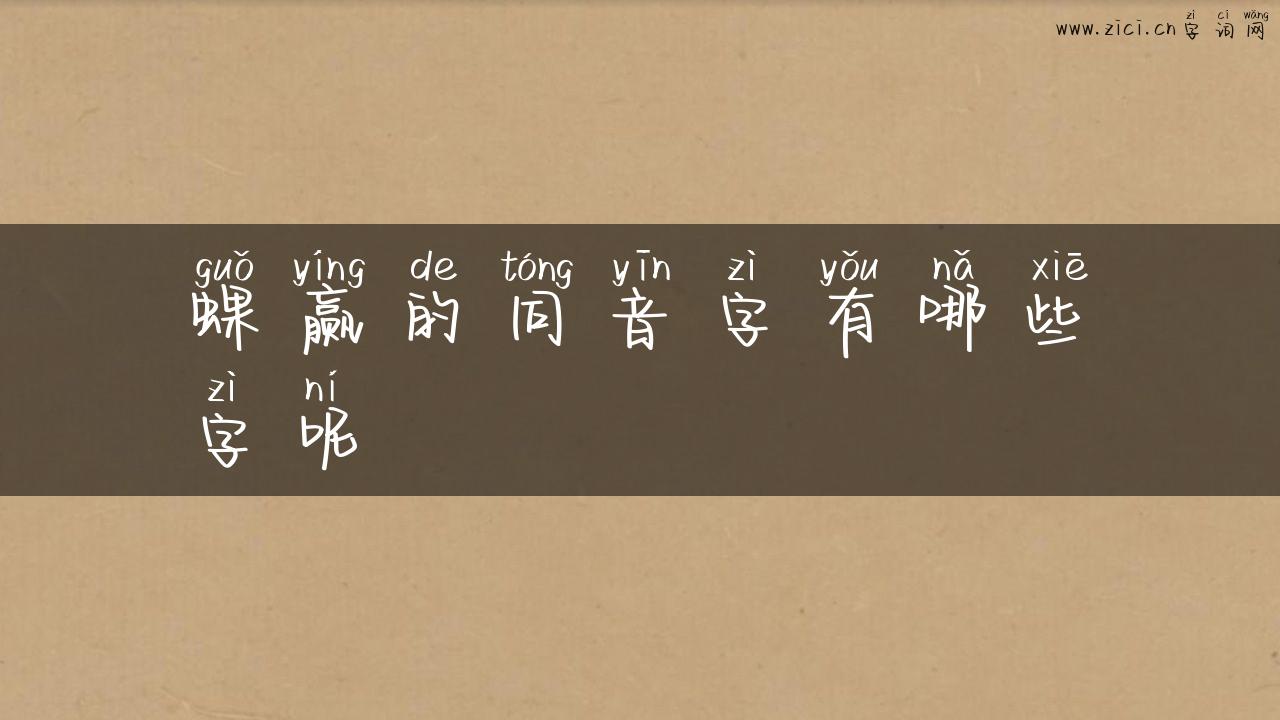 zì cí wǎng
www.zici.cn 字词网
guǒ yíng de tóng yīn zì yǒu nǎ xiē
蜾赢的同音字有哪些
zì ní
字呢